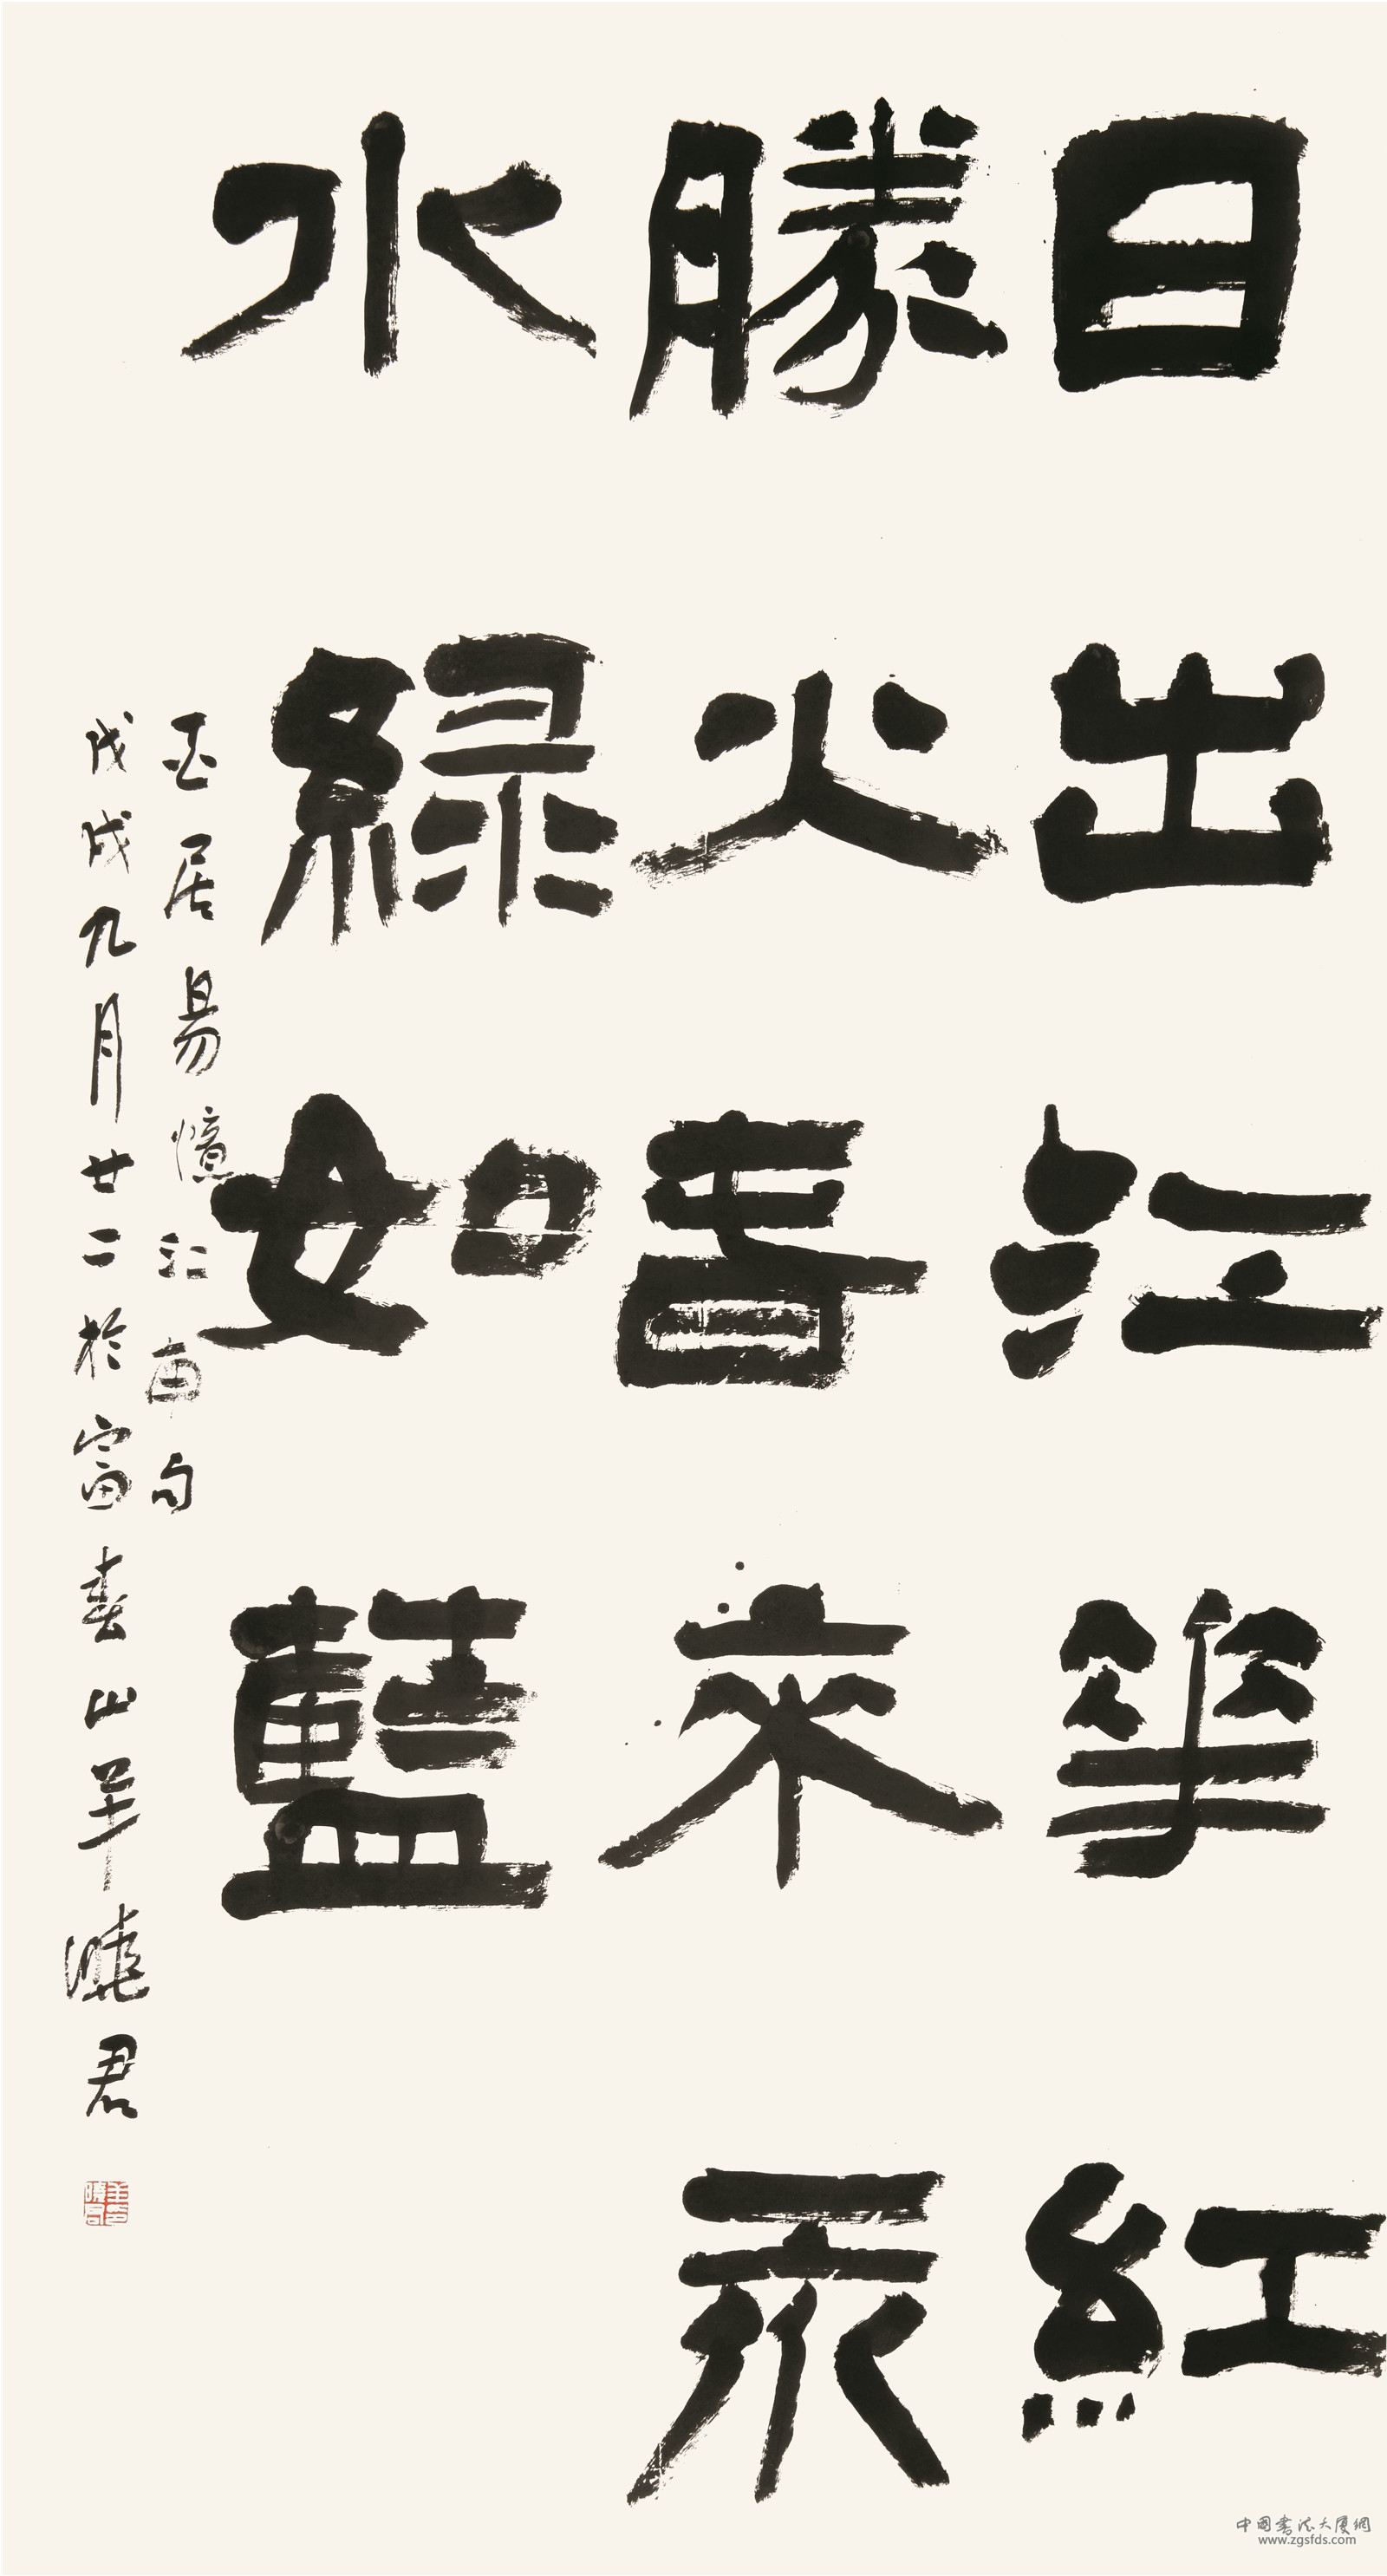 日出江華紅
勝火春來江
水綠如藍
白居易憶江南句
戊戌九月廿二於富春山羊曉君
中國書法大廈網
www.zgsfds.com